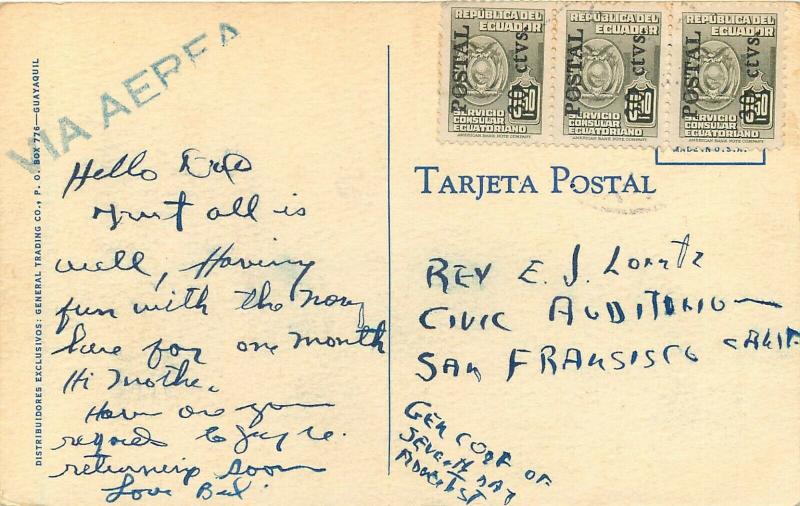 VIA AEREA
DISTRIBUIDORES EXCLUSIVOS: GENERAL TRADING CO., P. O. BOX 776—GUAYAQUIL
Hello
Trust all is
well, Having
fun with the
here for one month
Hi Mother.
How are you
regards to
returning soon
Love
REPÚBLICA DEL ECUADOR
POSTAL
ctvs.
SERVICIO CONSULAR ECUATORIANO
AMERICAN BANK NOTE COMPANY
REPÚBLICA DEL ECUADOR
POSTAL
ctvs.
SERVICIO CONSULAR ECUATORIANO
AMERICAN BANK NOTE COMPANY
REPÚBLICA DEL ECUADOR
POSTAL
ctvs.
SERVICIO CONSULAR ECUATORIANO
AMERICAN BANK NOTE COMPANY
MADE IN U.S.A.
TARJETA POSTAL
REV E. J. Lorntz
CIVIC AUDITORIUM
SAN FRANSISCO CALIF
GEN CONF OF
SEVENTH DAY
ADVENTIST